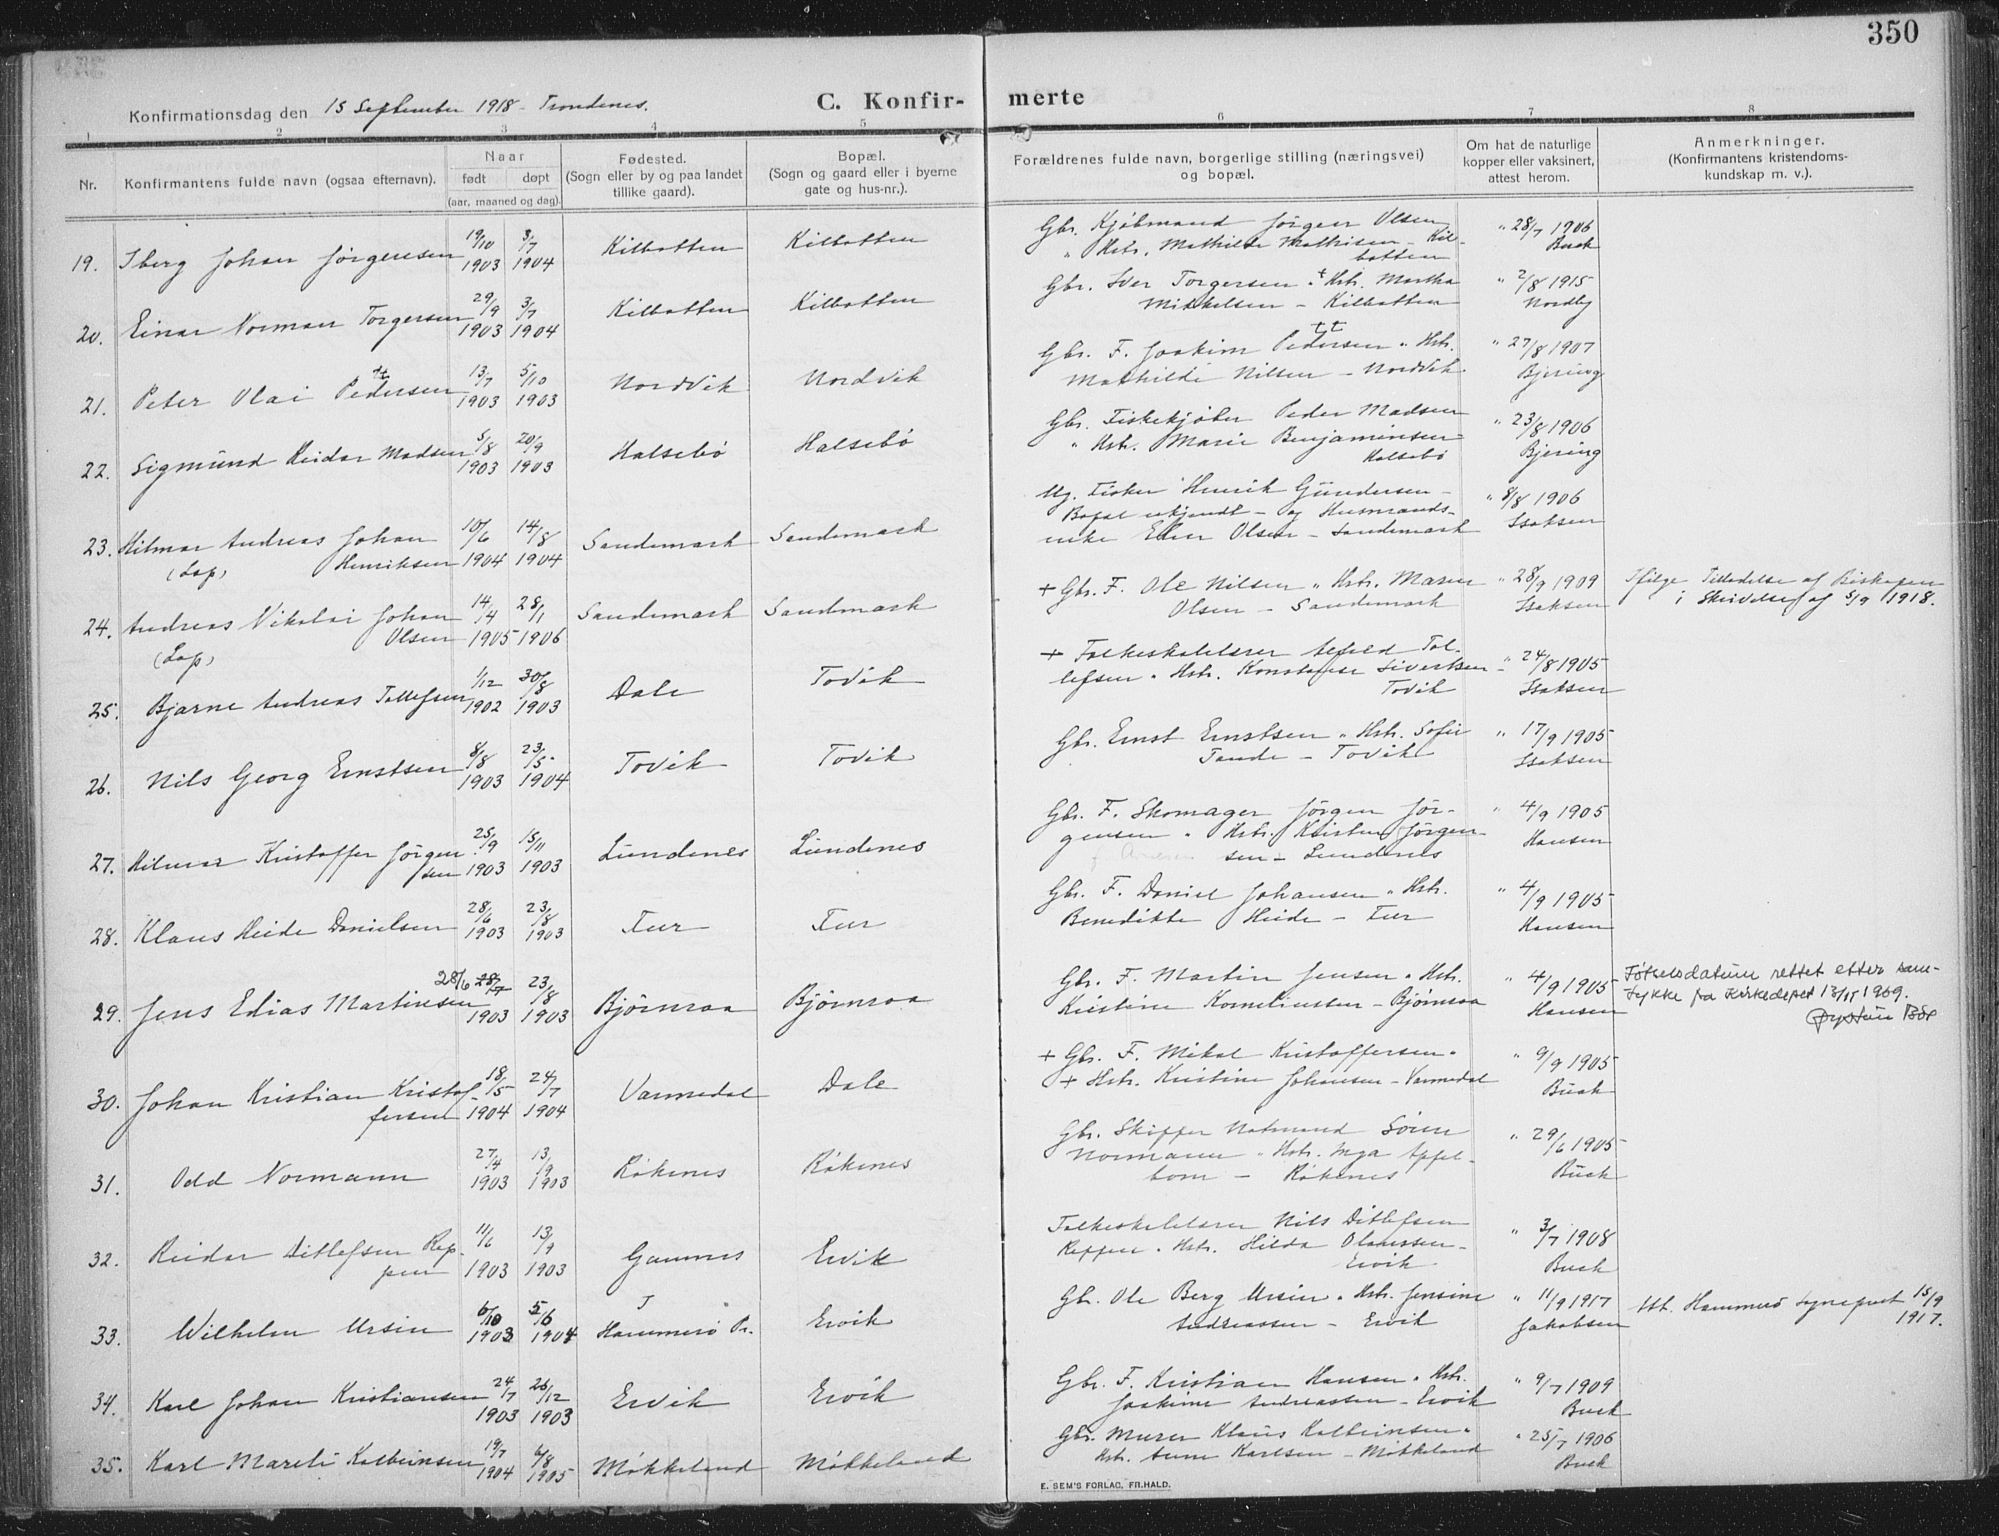 350
Konfirmationsdag den 15 September 1918 - Trondenes.
C. Konfir- merte
1 2 3 4 5 6 7 8
Nr.
Konfirmantens fulde navn (ogsaa efternavn).
Naar
født døpt
(aar, maaned og dag).
Fødested.
(Sogn eller by og paa landet
tillike gaard).
Bopæl.
(Sogn og gaard eller i byerne
gate og hus-nr.).
Forældrenes fulde navn, borgerlige stilling (næringsvei)
og bopæl.
Om hat de naturlige
kopper eller vaksinert,
attest herom.
Anmerkninger.
(Konfirmantens kristendoms-
kundskap m. v.).
19. Iberg Johan Jørgensen 19/10 1903 3/7 1904 Kilbotten Kilbotten
Gbr. Kjøbmand Jørgen Olsen
" Hstr. Mathilde Mathisen - Kil-
botten
" 28/7 1906
Buck
20. Einar Norman Torgersen 29/9 1903 3/7 1904 Kilbotten Kilbotten
Gbr. Iver Torgersen " Hstr. Martha
Mikkelsen - Kilbotten
" 2/8 1915
Nordby
21. Peter Olai Pedersen 13/7 1903 5/10 1903 Nordvik Nordvik
tt
Gbr. F. Joakim Pedersen " Hstr.
Mathilde Nilsen - Nordvik
" 27/8 1907
Bjering
22. Sigmund Reidar Madsen 5/8 1903 20/9 1903 Halsebø Halsebø
Gbr. Fiskekjøber Peder Madsen
" Hstr. Marie Benjaminsen
Halsebø
" 23/8 1906
Bjering
23. Hilmar Andreas Johan 10/6 1904 14/8 1904 Sandemark Sandemark
(Lap) Henriksen
Ug. Fisker Henrik Gundersen -
Bopæl ukjendt - og Husmands-
enke Ellen Olsen - Sandemark
" 8/8 1906
Isaksen
24. Andreas Nikolai Johan 14/4 1905 28/1 1906 Sandemark Sandmark
Olsen
(Lap)
+ Gbr. F. Ole Nilsen " Hstr. Maren
Olsen - Sandemark
" 28/9 1909
Isaksen
Ifølge Tilladelse af Biskopen
i Skrivelse af 5/9 1918.
25. Bjarne Andreas Tollefsen 1/12 1902 30/8 1903 Dale Tovik
+ Folkeskolelærer Tol-
lefsen " Hstr. Konstanse Sivertsen -
Tovik
" 24/8 1905
Isaksen
26. Nils Georg Ernstsen 8/8 1903 23/5 1904 Tovik Tovik
Gbr. Ernst Ernstsen " Hstr. Sofie
Tande - Tovik
" 17/9 1905
Isaksen
27. Hilmar Kristoffer Jørgen 25/9 1903 15/11 1903 Lundenes Lundenes
sen
Gbr. F. Skomager Jørgen Jør-
gensen " Hstr. Jørgen-
sen - Lundenes
" 4/9 1905
Hansen
28. Klaus Heide Danielsen 28/6 1903 23/8 1903 Fur Fur
Gbr. F. Daniel Johansen " Hstr.
Benedikte Heide - Fur
" 4/9 1905
Hansen
29. Jens Edias Martinsen 28/6 28/7 1903 23/8 1903 Bjørnraa Bjørnraa
Gbr. F. Martin Jensen " Hstr.
Kristine Korneliussen - Bjørnraa
" 4/9 1905
Hansen
Fødselsdatum rettet etter sam-
tykke fra Kirkedepet 13/11 1969.
Øystein Bøe
30. Johan Kristian Kristof- 18/5 1904 24/7 1904 Varmedal Dale
fersen
+ Gbr. F. Mikal Kristoffersen "
+ Hstr. Kristine Johansen - Varmedal
" 9/9 1905
Buck
31. Odd Normann 27/4 1903 13/9 1903 Røkenes Røkenes
Gbr. Skipper Notmand Sören
Normann " Hstr. Inga Appel-
bom - Røkenes
" 29/6 1905
Buck
32. Reidar Ditlefsen Rep- 11/6 1903 13/9 1903 Gamnes Ervik
pen
Folkeskolelærer Nils Ditlefsen
Reppen " Hstr. Hilda Olaussen -
Ervik
" 3/7 1908
Buck
33. Wilhelm Ursin 6/10 1903 5/6 1904 Hammerø Pr. Ervik
Gbr. Ole Berg Ursin " Hstr. Jensine
Andreassen - Ervik
" 11/9 1917
Jakobsen
Att. Hammerø Sogneprest 15/9
1917.
34. Karl Johan Kristiansen 24/7 1903 26/12 1903 Ervik Ervik
Gbr. F. Kristian Hansen " Hstr.
Joakime Andreassen - Ervik
" 9/7 1909
Buck
35. Karl Mareli Kolbeinsen 19/7 1904 6/8 1905 Møkkeland Møkkeland
Gbr. Murer Klaus Kolbeinsen "
Hstr. Anne Karlsen - Møkkeland
" 25/7 1906
Buck
E. SEM'S FORLAG, FR.HALD.